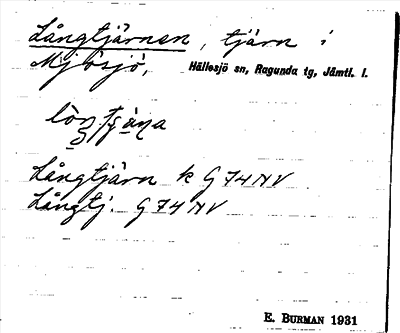 Långtjärnen, tjärn i
Mjösjö, Hällesjö sn, Ragunda tg, Jämtl. l.
Långtjärn k G 74 NV
Långtj. G 74 NV
E. BURMAN 1931